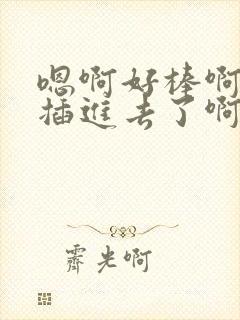 嗯啊好棒啊
插进去了啊
霁光啊